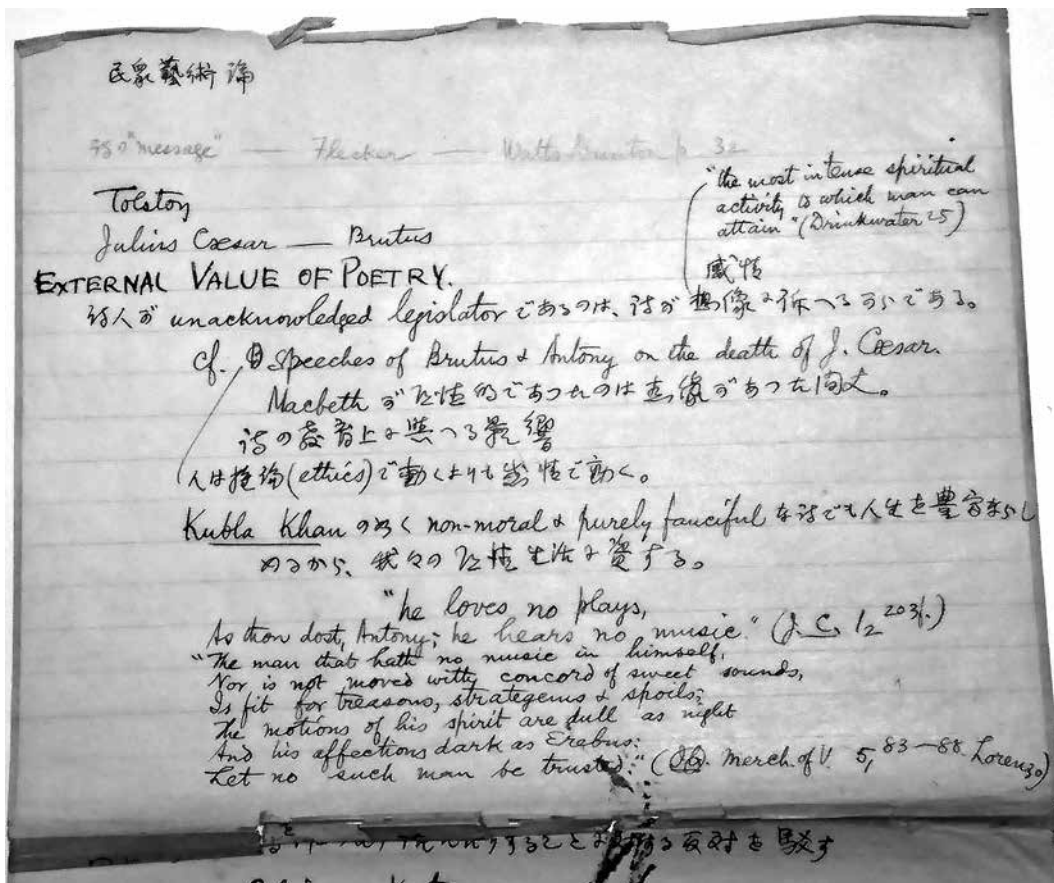 民衆藝術論
詩の "message" — Flecker — Watts-Dunton p. 32
"the most intense spiritual
activity to which man can
attain" (Drinkwater 25)
Tolstoy
Julius Cæsar — Brutus
感情
EXTERNAL VALUE OF POETRY.
詩人が unacknowledged legislator であるのは、詩が想像に訴へるからである。
cf. Speeches of Brutus & Antony on the death of J. Cæsar.
Macbeth が であつたのは想像があつた
詩の教育上に與へる影響
人は推論(ethics)で動くよりも感情で動く。
Kubla Khan の如く non-moral & purely fanciful な詩でも人生を豊富ならし
めるから、我々の 生活に資する。
"he loves no plays,
As thou dost, Antony; he hears no music." (J. C. 1, 2 203f.)
"The man that hath no music in himself,
Nor is not moved with concord of sweet sounds,
Is fit for treasons, strategems & spoils;
The motions of his spirit are dull as night
And his affections dark as Erebus:
Let no such man be trusted." (Merch. of V. 5, 83–88. Lorenzo)
すること する反対を駁す